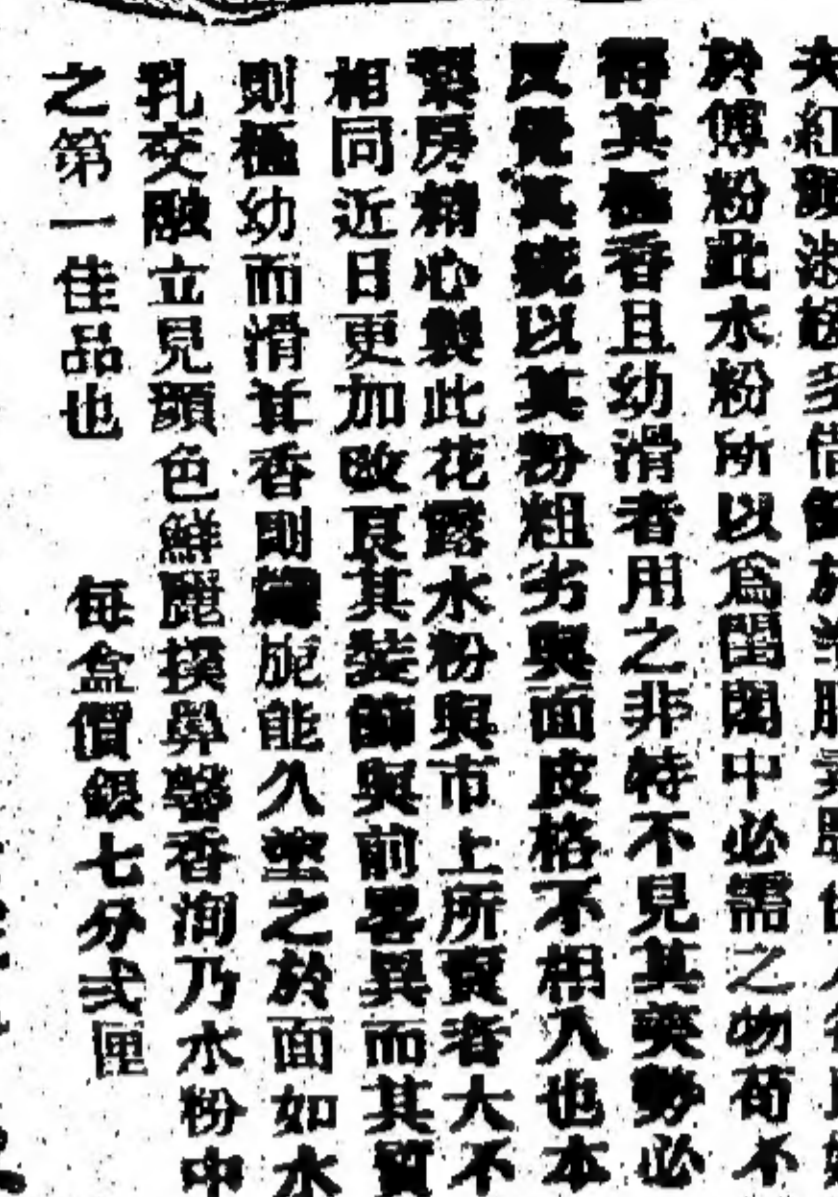 於傅粉此水粉所以爲閨閣中必需之物苟不
得其極香且幼滑者用之非特不見其美勢必
反覺其疵以其粉粗劣與面皮格不相入也本
藥房精心製此花露水粉與市上所賣者大不
相同近日更加改良其裝飾與前畧異而其質
則極幼而滑其香則旎能久塗之於面如水
乳交融立見顏色鮮麗撲鼻馨香洵乃水粉中
之第一佳品也 每盒價銀七分弍厘